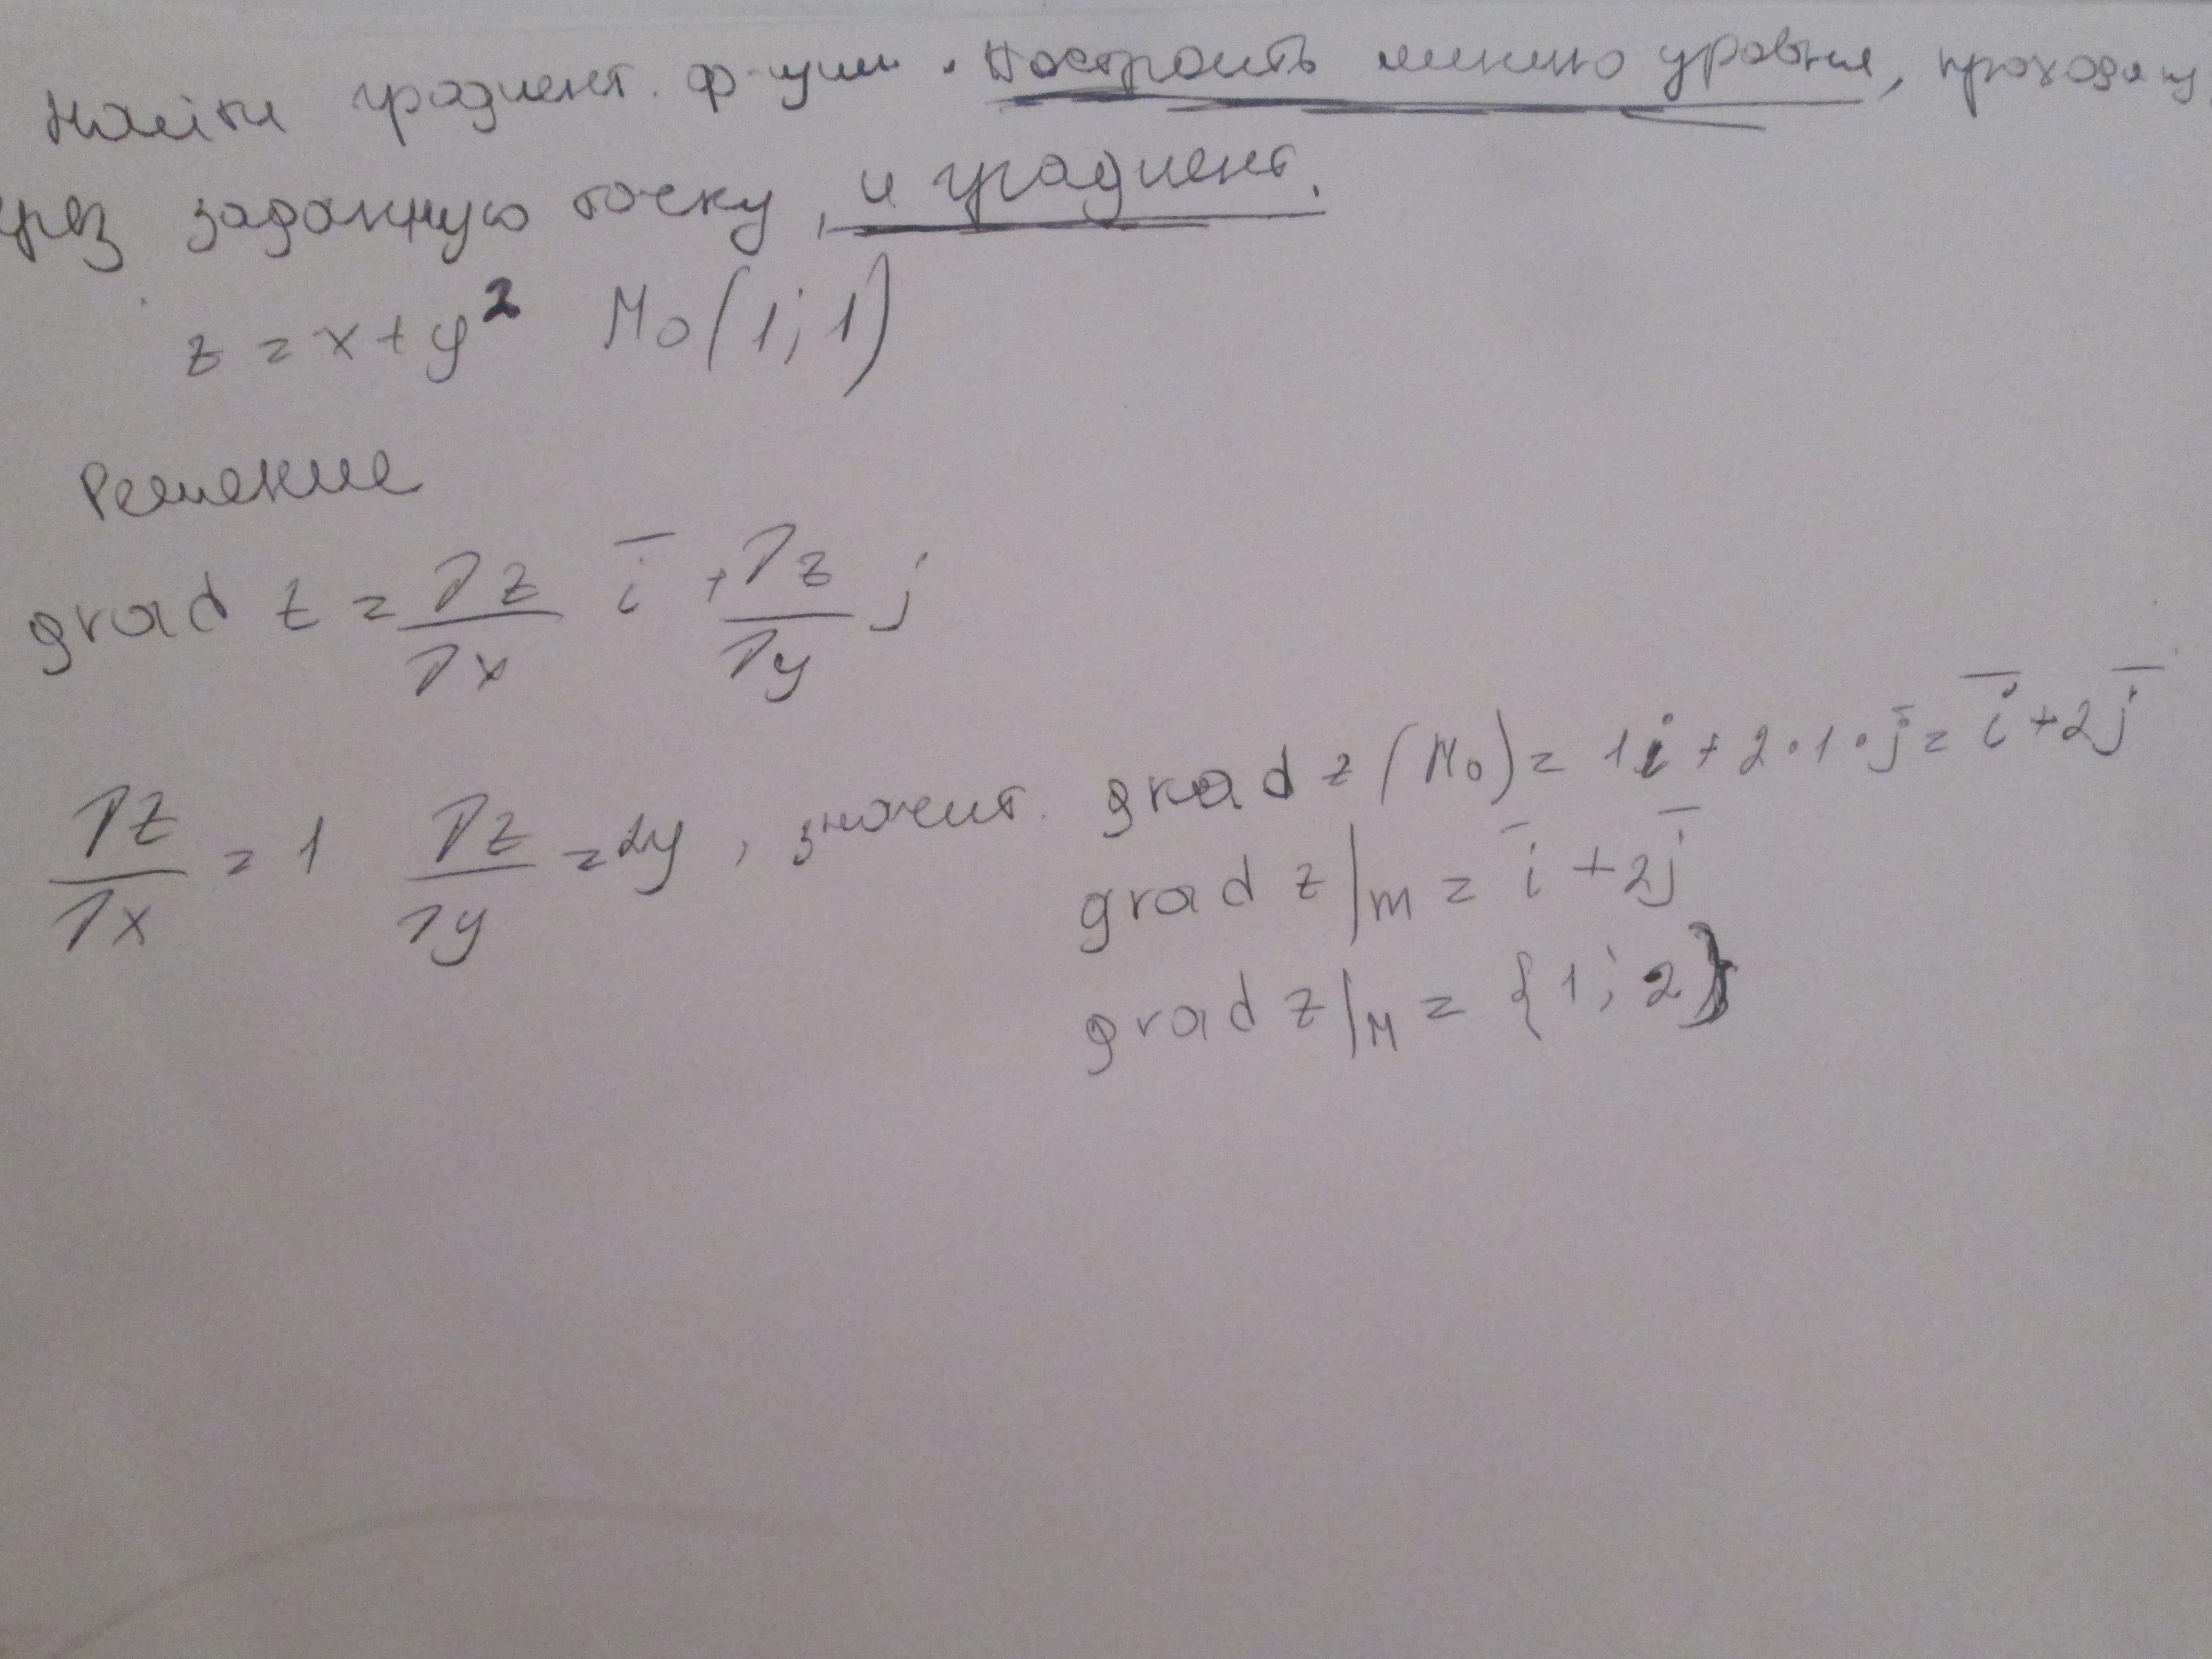 Найти градиент. ф-ции. Построить линию уровня, проходящ
ерез заданную точку, и градиент.
z = x + y² M₀(1; 1)
Решение
grad z = ∂z/∂x i̅ + ∂z/∂y j
∂z/∂x = 1 ∂z/∂y = 2y, значит. grad z(M₀) = 1i + 2·1·j̅ = i̅ + 2j̅
grad z|m = i̅ + 2j̅
grad z|M = {1; 2}